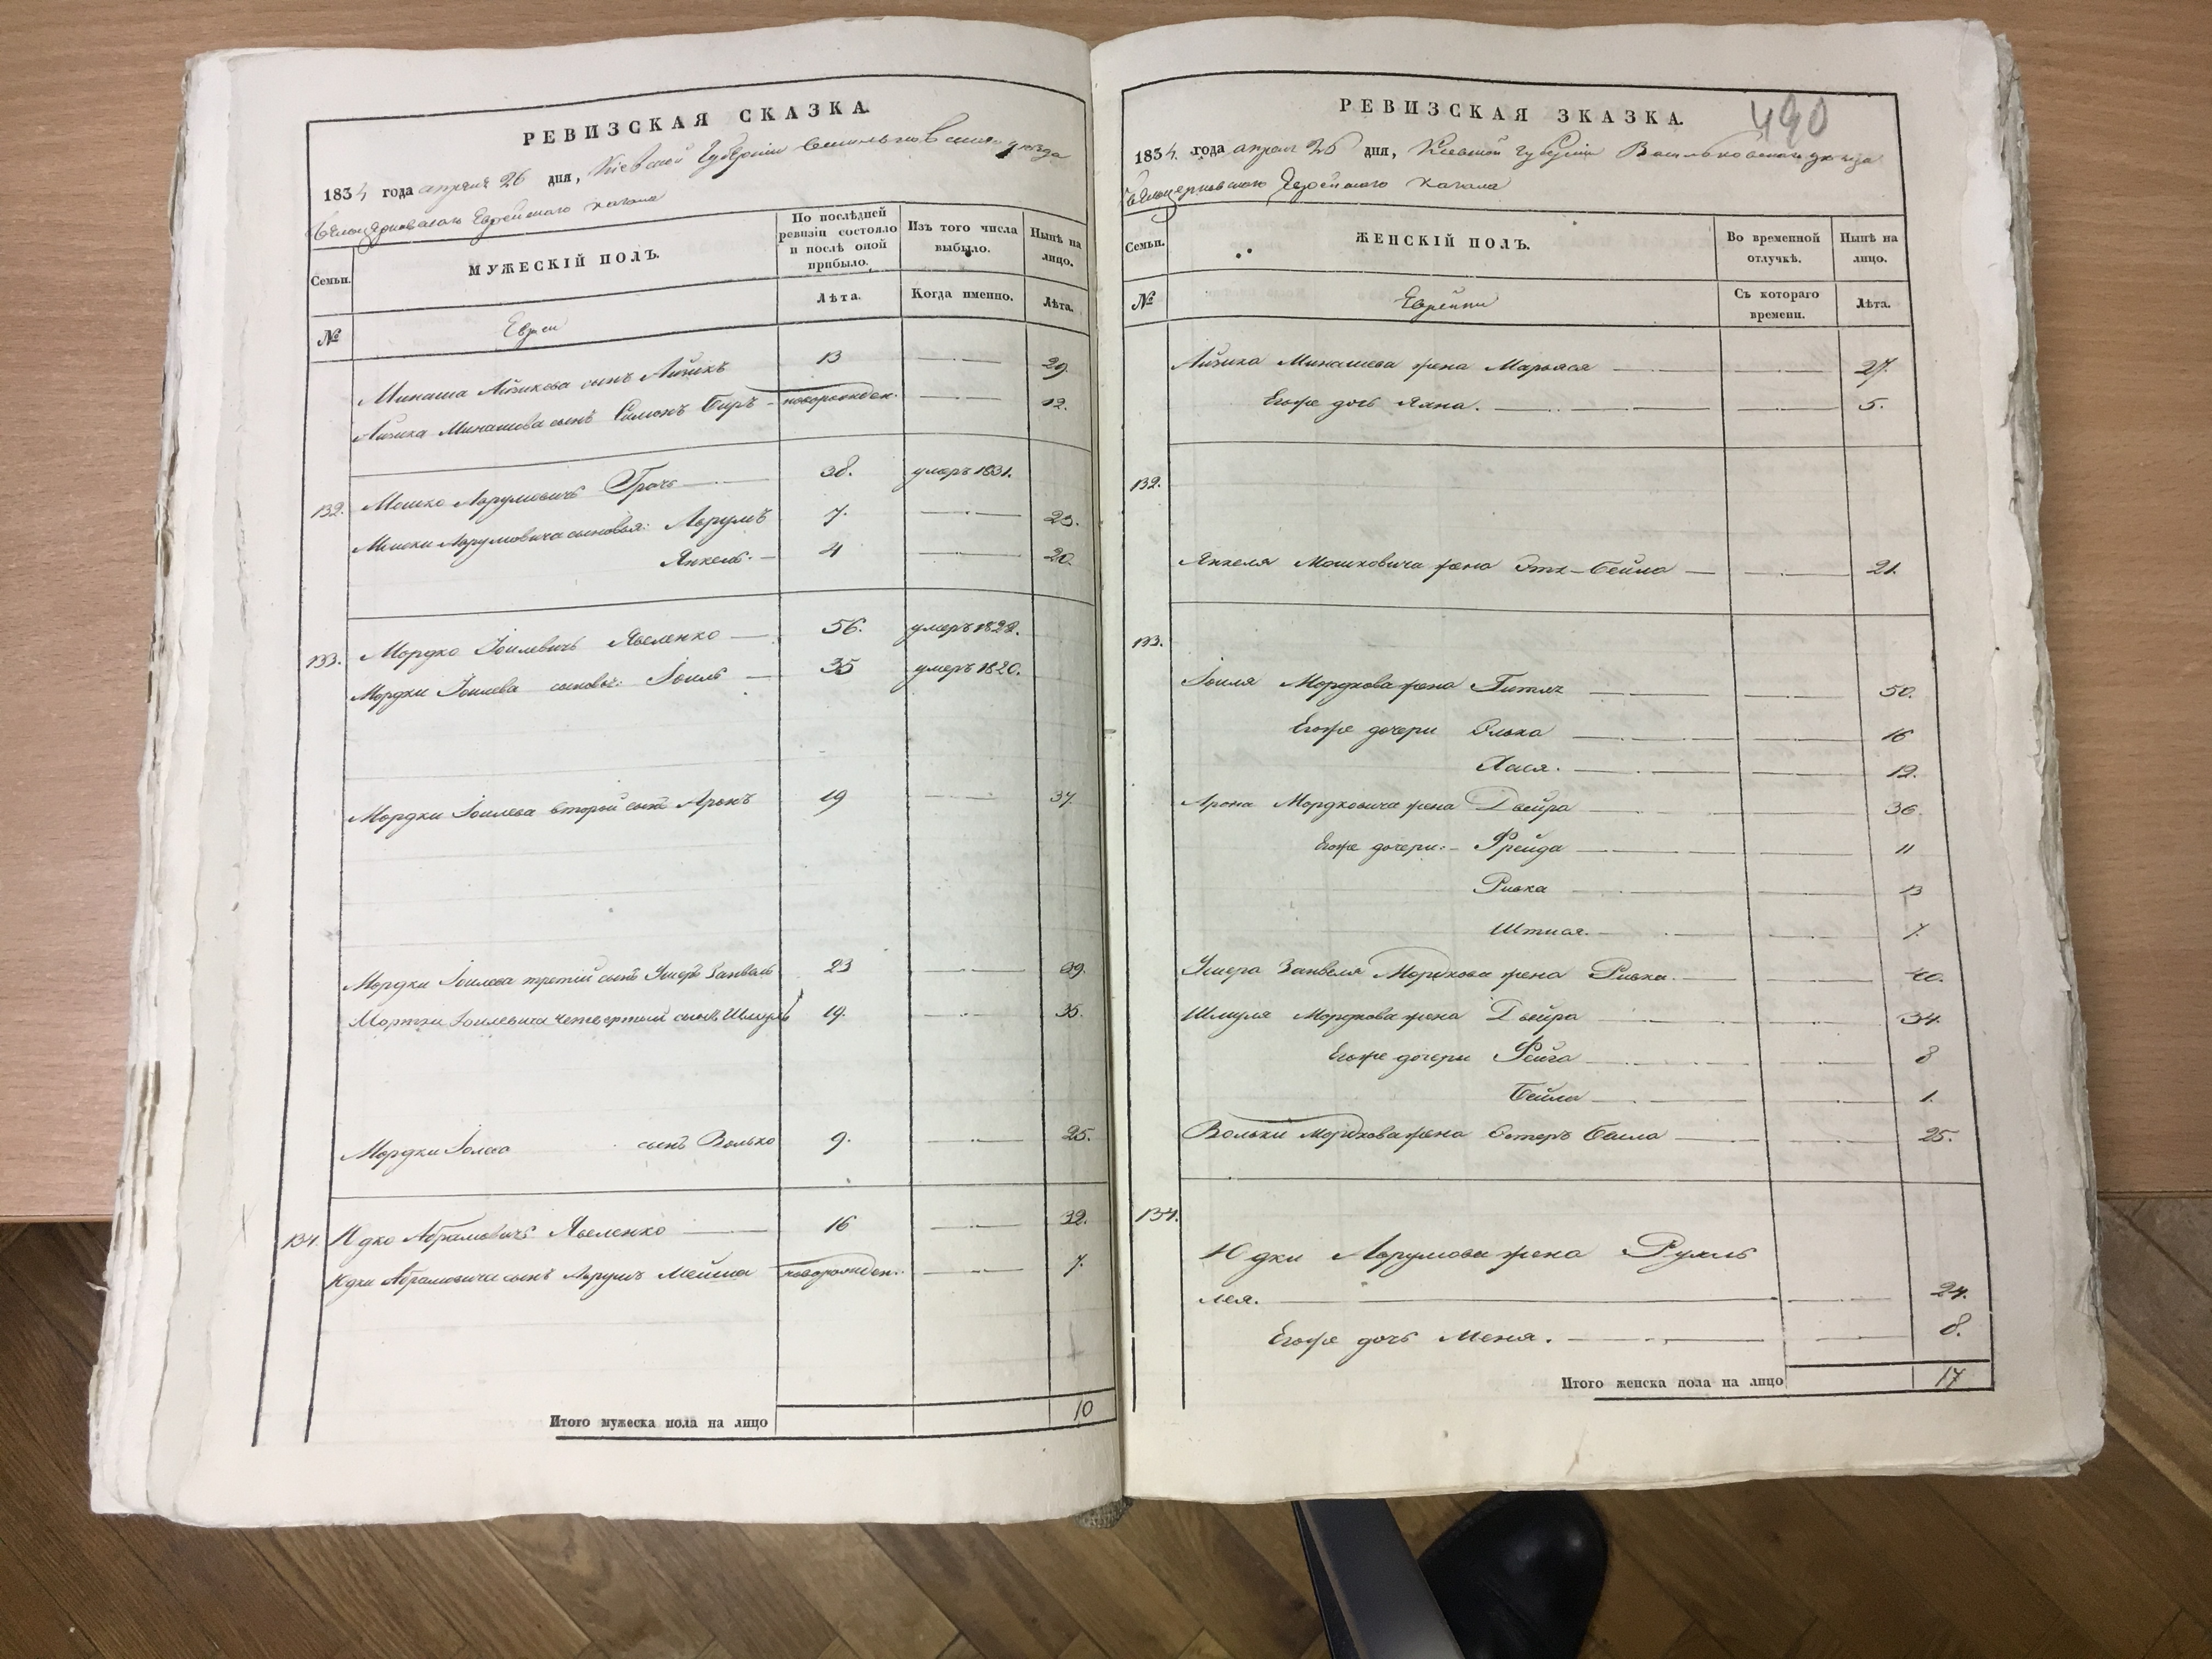 РЕВИЗСКАЯ СКАЗКА.
1834 года апреля 26 дня, Кіевской Губерніи Васильковскаго уезда
Белоцерковскаго Еврейскаго кагала
Семьи.
МУЖЕСКІЙ ПОЛЪ.
По послѣдней ревизіи состояло и послѣ оной прибыло.
Изъ того числа выбыло.
Нынѣ на лицо.
№
Евреи
Лѣта.
Когда именно.
Лѣта.
Минаша Айзикова сынъ Айзикъ 13 29.
Айзика Минашева сынъ Симонъ Беръ новорожден. 12.
132. Мошко Аврумовичъ Грачъ 38. умеръ 1831.
Мошки Аврумовича сыновья: Аврумъ 7. 23.
Янкель. 4 20.
133. Мордко Іоилевичъ Явленко 56. умеръ 1828.
Мордки Іоилева сыновья: Іоиль 35 умеръ 1820.
Мордки Іоилева второй сынъ Аронъ 19 37.
Мордки Іоилева третій сынъ Ушеръ Занвель 23 39.
Мортки Іоилевича четвертый сынъ Шмуль 19. 35.
Мордки Іолева сынъ Волько 9. 25.
134. Юдко Абрамовичъ Явленко 16 32.
Юдки Абрамовича сынъ Аврумъ Мейша новорожден. 7.
Итого мужеска пола на лицо 10
490
РЕВИЗСКАЯ ЗКАЗКА.
1834. года апреля 26 дня, Кіевской Губерніи Васильковскаго уезда
Белоцерковскаго Еврейскаго кагала
Семьи.
ЖЕНСКІЙ ПОЛЪ.
Во временной отлучкѣ.
Нынѣ на лицо.
№
Еврейки
Съ котораго времени.
Лѣта.
Айзика Минашева жена Марьяся 27.
Егоже дочь Яхна. 5.
132.
Янкеля Мошковича жена Этк-Бейла 21.
133.
Іоиля Мордкова жена Гитля 50.
Егоже дочери Элька 16
Хася. 12.
Арона Мордковича жена Двейра 36.
Егоже дочери: Фрейда 11
Ривка 13
7.
Ушера Занвеля Мордкова жена Ривка. 40.
Шмуля Мордкова жена Двейра 34.
Егоже дочери Фейга 8
Бейла 1.
Вольки Мордкова жена Эстеръ Басла 25.
134.
Юдки Аврумова жена Рухль
Лея. 24.
Егоже дочь Меня. 8.
Итого женска пола на лицо 17